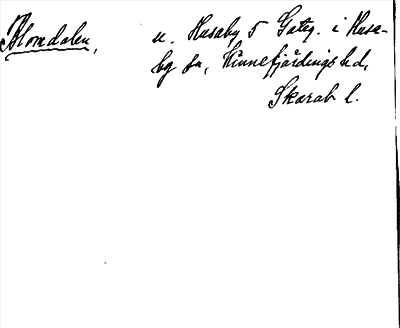 Blomdalen, u. Husaby 5 Gateg. i Husa-
by sn, Kinnefjärdings hd,
Skarab l.